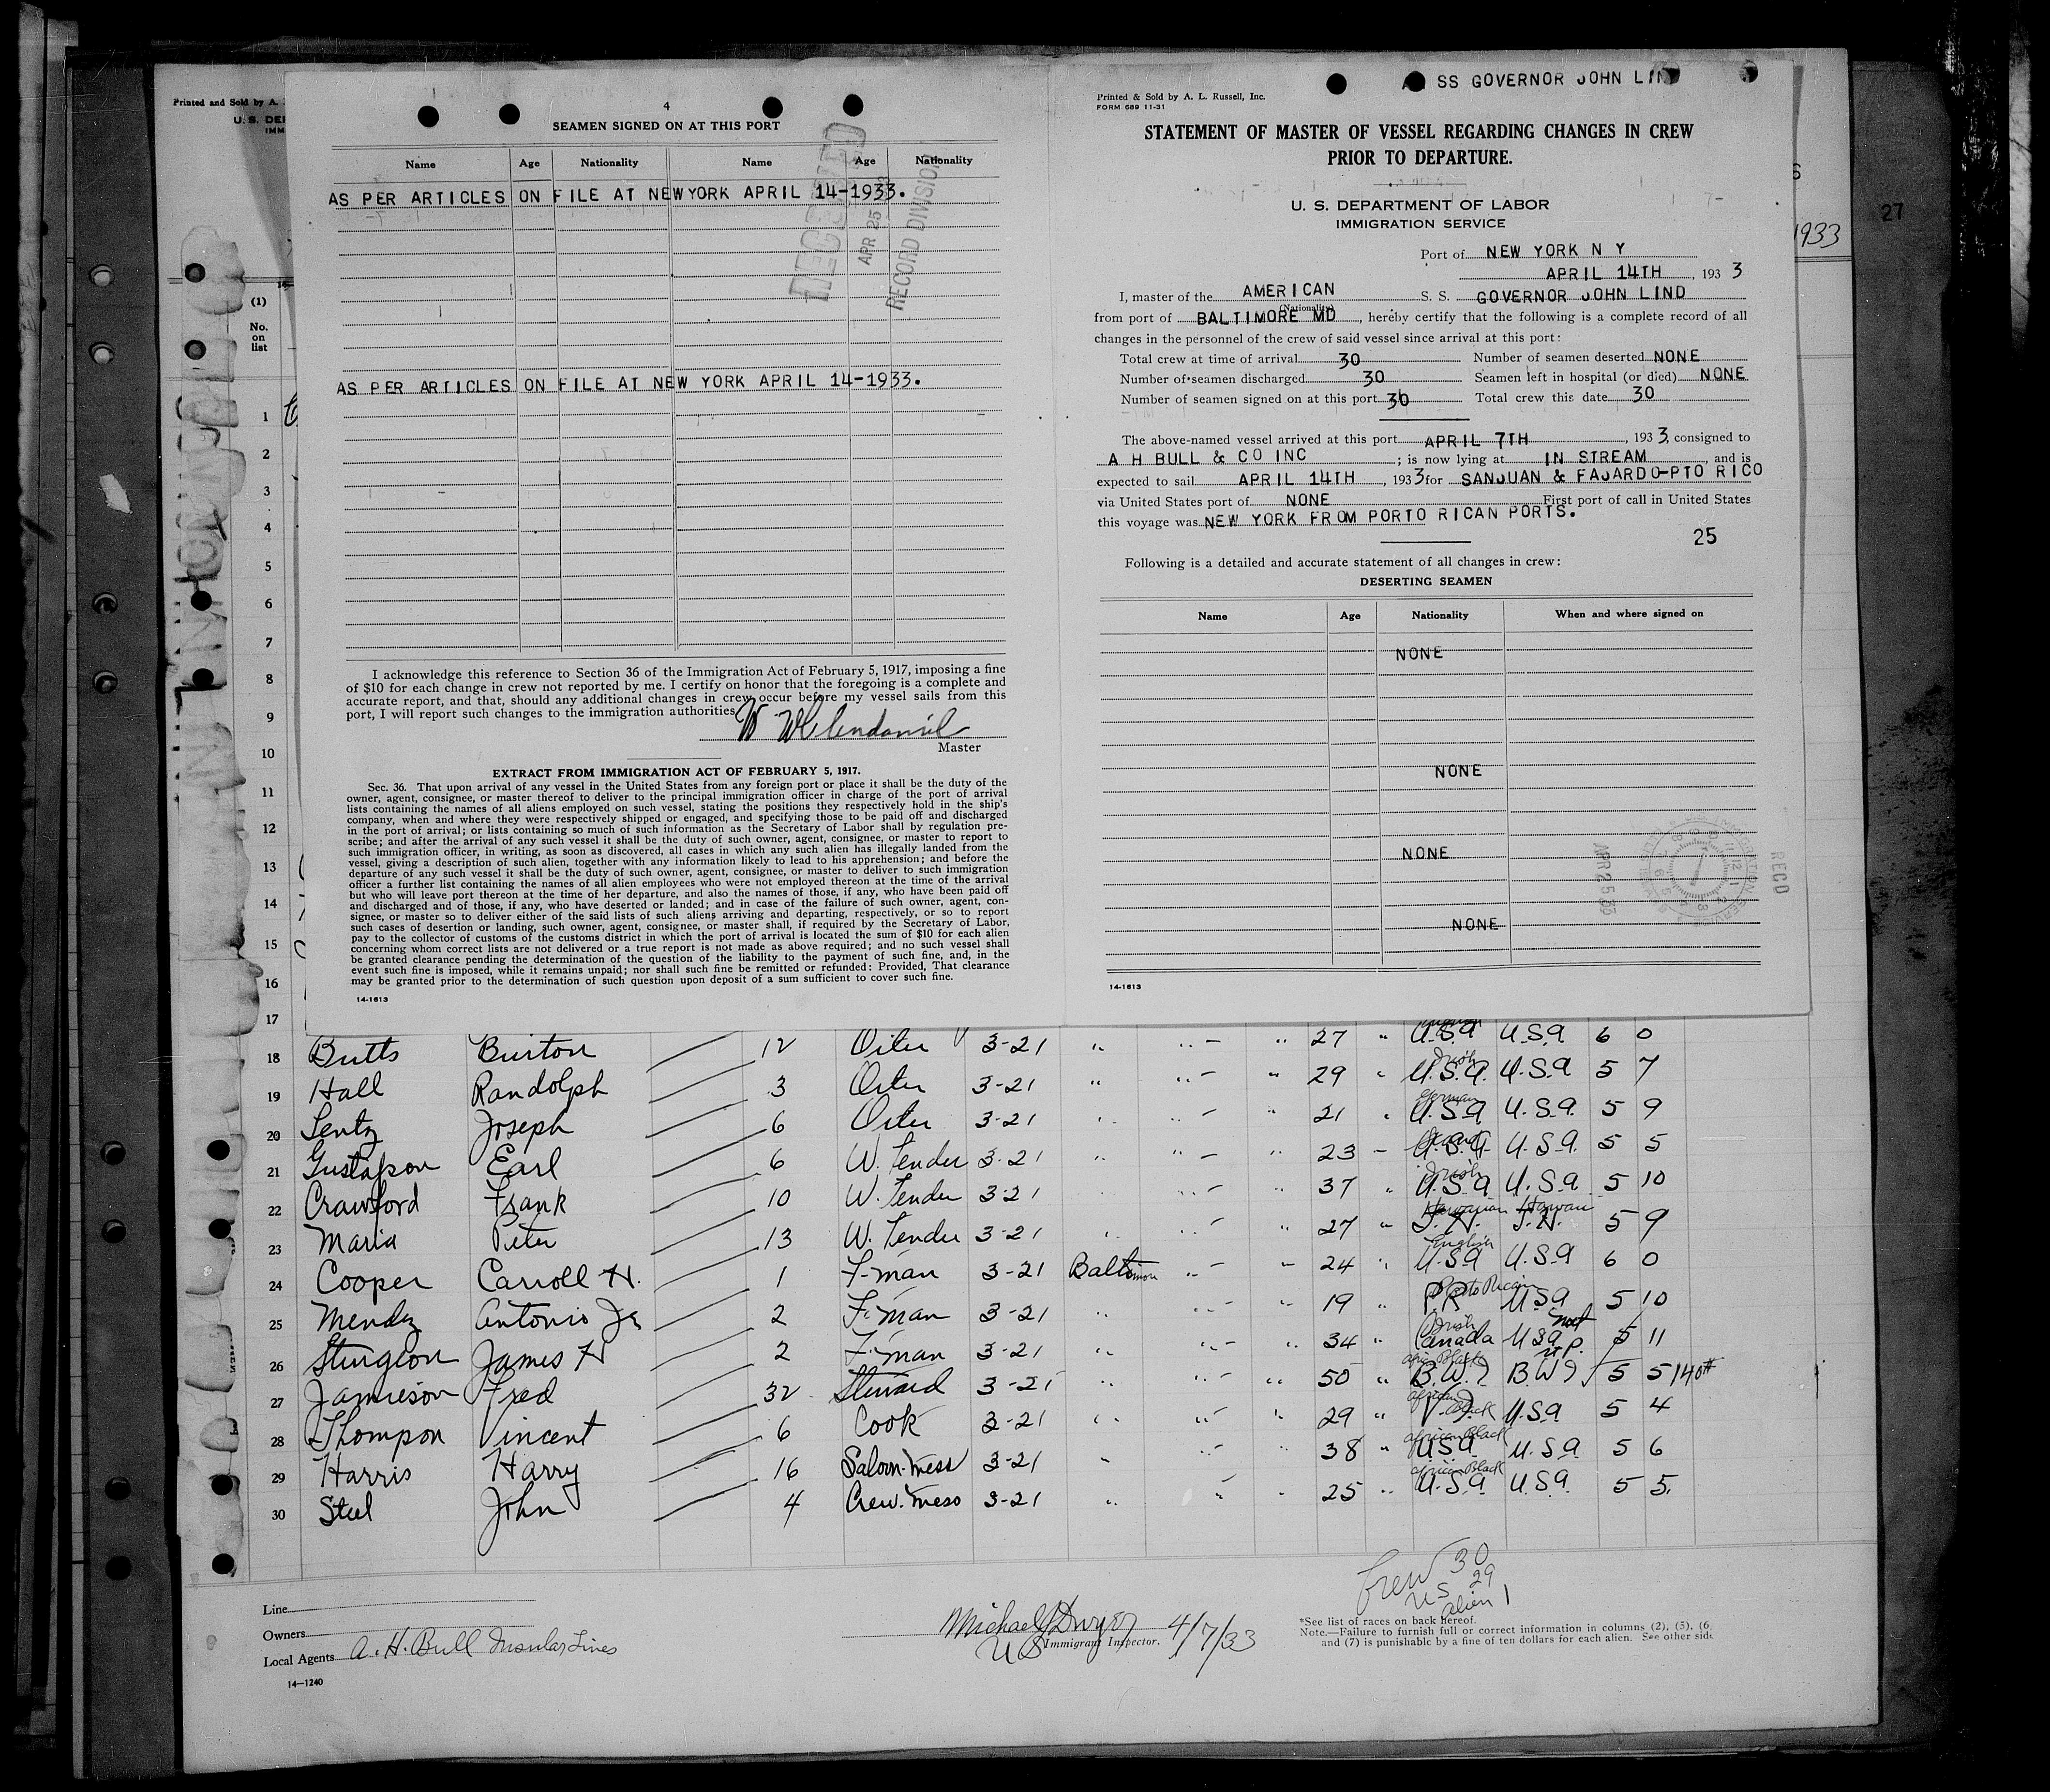 Printed and Sold by A.
U. S. DE
IMM
(1)
No.
on
list
4
SEAMEN SIGNED ON AT THIS PORT
Name Age Nationality Name Age Nationality
AS PER ARTICLES ON FILE AT NEWYORK APRIL 14-1933.
RECEIVED
APR 25
RECORD DIVISION
AS PER ARTICLES ON FILE AT NEW YORK APRIL 14-1933.
I acknowledge this reference to Section 36 of the Immigration Act of February 5, 1917, imposing a fine
of $10 for each change in crew not reported by me. I certify on honor that the foregoing is a complete and
accurate report, and that, should any additional changes in crew occur before my vessel sails from this
port, I will report such changes to the immigration authorities.
Master
EXTRACT FROM IMMIGRATION ACT OF FEBRUARY 5, 1917.
Sec. 36. That upon arrival of any vessel in the United States from any foreign port or place it shall be the duty of the
owner, agent, consignee, or master thereof to deliver to the principal immigration officer in charge of the port of arrival
lists containing the names of all aliens employed on such vessel, stating the positions they respectively hold in the ship's
company, when and where they were respectively shipped or engaged, and specifying those to be paid off and discharged
in the port of arrival; or lists containing so much of such information as the Secretary of Labor shall by regulation pre-
scribe; and after the arrival of any such vessel it shall be the duty of such owner, agent, consignee, or master to report to
such immigration officer, in writing, as soon as discovered, all cases in which any such alien has illegally landed from the
vessel, giving a description of such alien, together with any information likely to lead to his apprehension; and before the
departure of any such vessel it shall be the duty of such owner, agent, consignee, or master to deliver to such immigration
officer a further list containing the names of all alien employees who were not employed thereon at the time of the arrival
but who will leave port thereon at the time of her departure, and also the names of those, if any, who have been paid off
and discharged and of those, if any, who have deserted or landed; and in case of the failure of such owner, agent, con-
signee, or master so to deliver either of the said lists of such aliens arriving and departing, respectively, or so to report
such cases of desertion or landing, such owner, agent, consignee, or master shall, if required by the Secretary of Labor,
pay to the collector of customs of the customs district in which the port of arrival is located the sum of $10 for each alien
concerning whom correct lists are not delivered or a true report is not made as above required; and no such vessel shall
be granted clearance pending the determination of the question of the liability to the payment of such fine, and, in the
event such fine is imposed, while it remains unpaid; nor shall such fine be remitted or refunded: Provided, That clearance
may be granted prior to the determination of such question upon deposit of a sum sufficient to cover such fine.
14-1613
SS GOVERNOR JOHN LIND
Printed & Sold by A. L. Russell, Inc.
FORM 689 11-31
STATEMENT OF MASTER OF VESSEL REGARDING CHANGES IN CREW
PRIOR TO DEPARTURE.
U. S. DEPARTMENT OF LABOR
IMMIGRATION SERVICE
Port of NEW YORK N Y
APRIL 14TH, 1933
I, master of the AMERICAN S. S. GOVERNOR JOHN LIND
(Nationality)
from port of BALTIMORE MD, hereby certify that the following is a complete record of all
changes in the personnel of the crew of said vessel since arrival at this port:
Total crew at time of arrival 30 Number of seamen deserted NONE
Number of seamen discharged 30 Seamen left in hospital (or died) NONE
Number of seamen signed on at this port 30 Total crew this date 30
The above-named vessel arrived at this port APRIL 7TH, 1933, consigned to
A H BULL & CO INC; is now lying at IN STREAM, and is
expected to sail APRIL 14TH, 1933 for SANJUAN & FAJARDO-PTO RICO
via United States port of NONE First port of call in United States
this voyage was NEW YORK FROM PORTO RICAN PORTS.
25
Following is a detailed and accurate statement of all changes in crew:
DESERTING SEAMEN
Name Age Nationality When and where signed on
NONE
NONE
NONE
NONE
APR 25 33
REC'D
14-1613
1933
27
1
2
3
4
5
6
7
8
9
10
11
12
13
14
15
16
17
18 Butts Burton 12 Oiler 3-21 " " - " 27 " U.S.A U.S.A 6 0
19 Hall Randolph 3 Oiler 3-21 " " - " 29 " Irish U.S.A. U.S.A 5 7
20 Lentz Joseph 6 Oiler 3-21 " " - " 21 " German U.S.A U.S.A. 5 9
21 Gustafson Earl 6 W. Tender 3-21 " " - " 23 - U.S.A. U.S.A. 5 5
22 Crawford Frank 10 W. Tender 3-21 " " - " 37 " Irish U.S.A U.S.A 5 10
23 Maria Peter 13 W. Tender 3-21 " " - " 27 " Hawaiian T.H. Hawaii T.H. 5 9
24 Cooper Carroll H. 1 F-man 3-21 Baltimore " - " 24 " English U.S.A U.S.A 6 0
25 Mendez Antonio Jr 2 F-man 3-21 " " - " 19 " Porto Rican P.R. U.S.A 5 10
26 Sturgeon James H 2 F-man 3-21 " " - " 34 " Irish Canada U.S.A 5 11
27 Jamieson Fred 32 Steward 3-21 " " - " 50 " B.W.I B.W.I 5 5 140#
28 Thompson Vincent 6 Cook 3-21 " " - " 29 " African Black V.I. U.S.A 5 4
29 Harris Harry 16 Saloon-mess 3-21 " " - " 38 " African Black U.S.A U.S.A 5 6
30 Steel John 4 Crew. mess 3-21 " " " 25 " African Black U.S.A U.S.A. 5 5.
Crew 30
US 29
alien 1
Line
Owners
Local Agents A. H. Bull Insular Lines
14-1240
Michael J Dwyer 4/7/33
US Immigrant Inspector.
*See list of races on back hereof.
Note.—Failure to furnish full or correct information in columns (2), (5), (6
and (7) is punishable by a fine of ten dollars for each alien. See other side